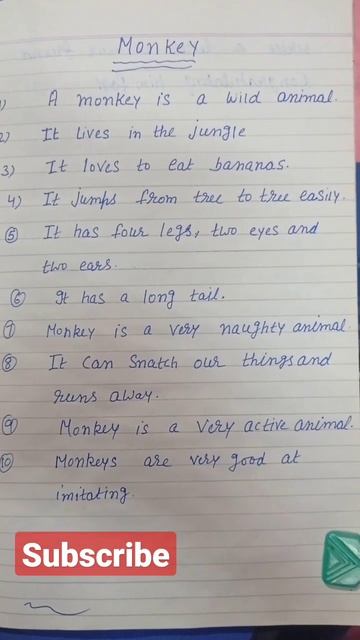 Monkey
1) A monkey is a wild animal.
2) It lives in the jungle
3) It loves to eat bananas.
4) It jumps from tree to tree easily.
5 It has four legs, two eyes and
two ears.
6 It has a long tail.
7 Monkey is a very naughty animal.
8 It can snatch our things and
runs away.
9 Monkey is a very active animal.
10 Monkeys are very good at
imitating.
Subscribe